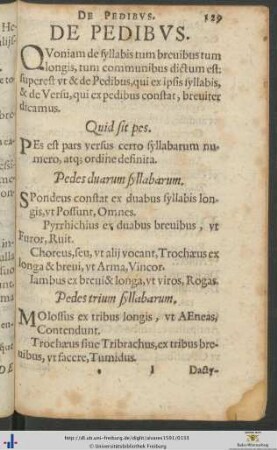 DE PEDIBVS. 129
DE PEDIBVS.
QVoniam de syllabis tum breuibus tum
longis, tum communibus dictum est:
superest vt & de Pedibus, qui ex ipsis syllabis,
& de Versu, qui ex pedibus constat, breuiter
dicamus.
Quid sit pes.
PEs est pars versus certo syllabarum nu-
mero, atq; ordine definita.
Pedes duarum syllabarum.
SPondeus constat ex duabus syllabis lon-
gis, vt Possunt, Omnes.
Pyrrhichius ex duabus breuibus, vt
Furor, Ruit.
Choreus, seu, vt alij vocant, Trochæus ex
longa & breui, vt Arma, Vincor.
Iambus ex breui & longa, vt viros, Rogas.
Pedes trium syllabarum.
MOlossus ex tribus longis, vt AEneas,
Contendunt.
Trochæus siue Tribrachus, ex tribus bre-
uibus, vt facere, Tumidus.
I Dacty-
http://dl.ub.uni-freiburg.de/diglit/alvares1591/0133
© Universitätsbibliothek Freiburg